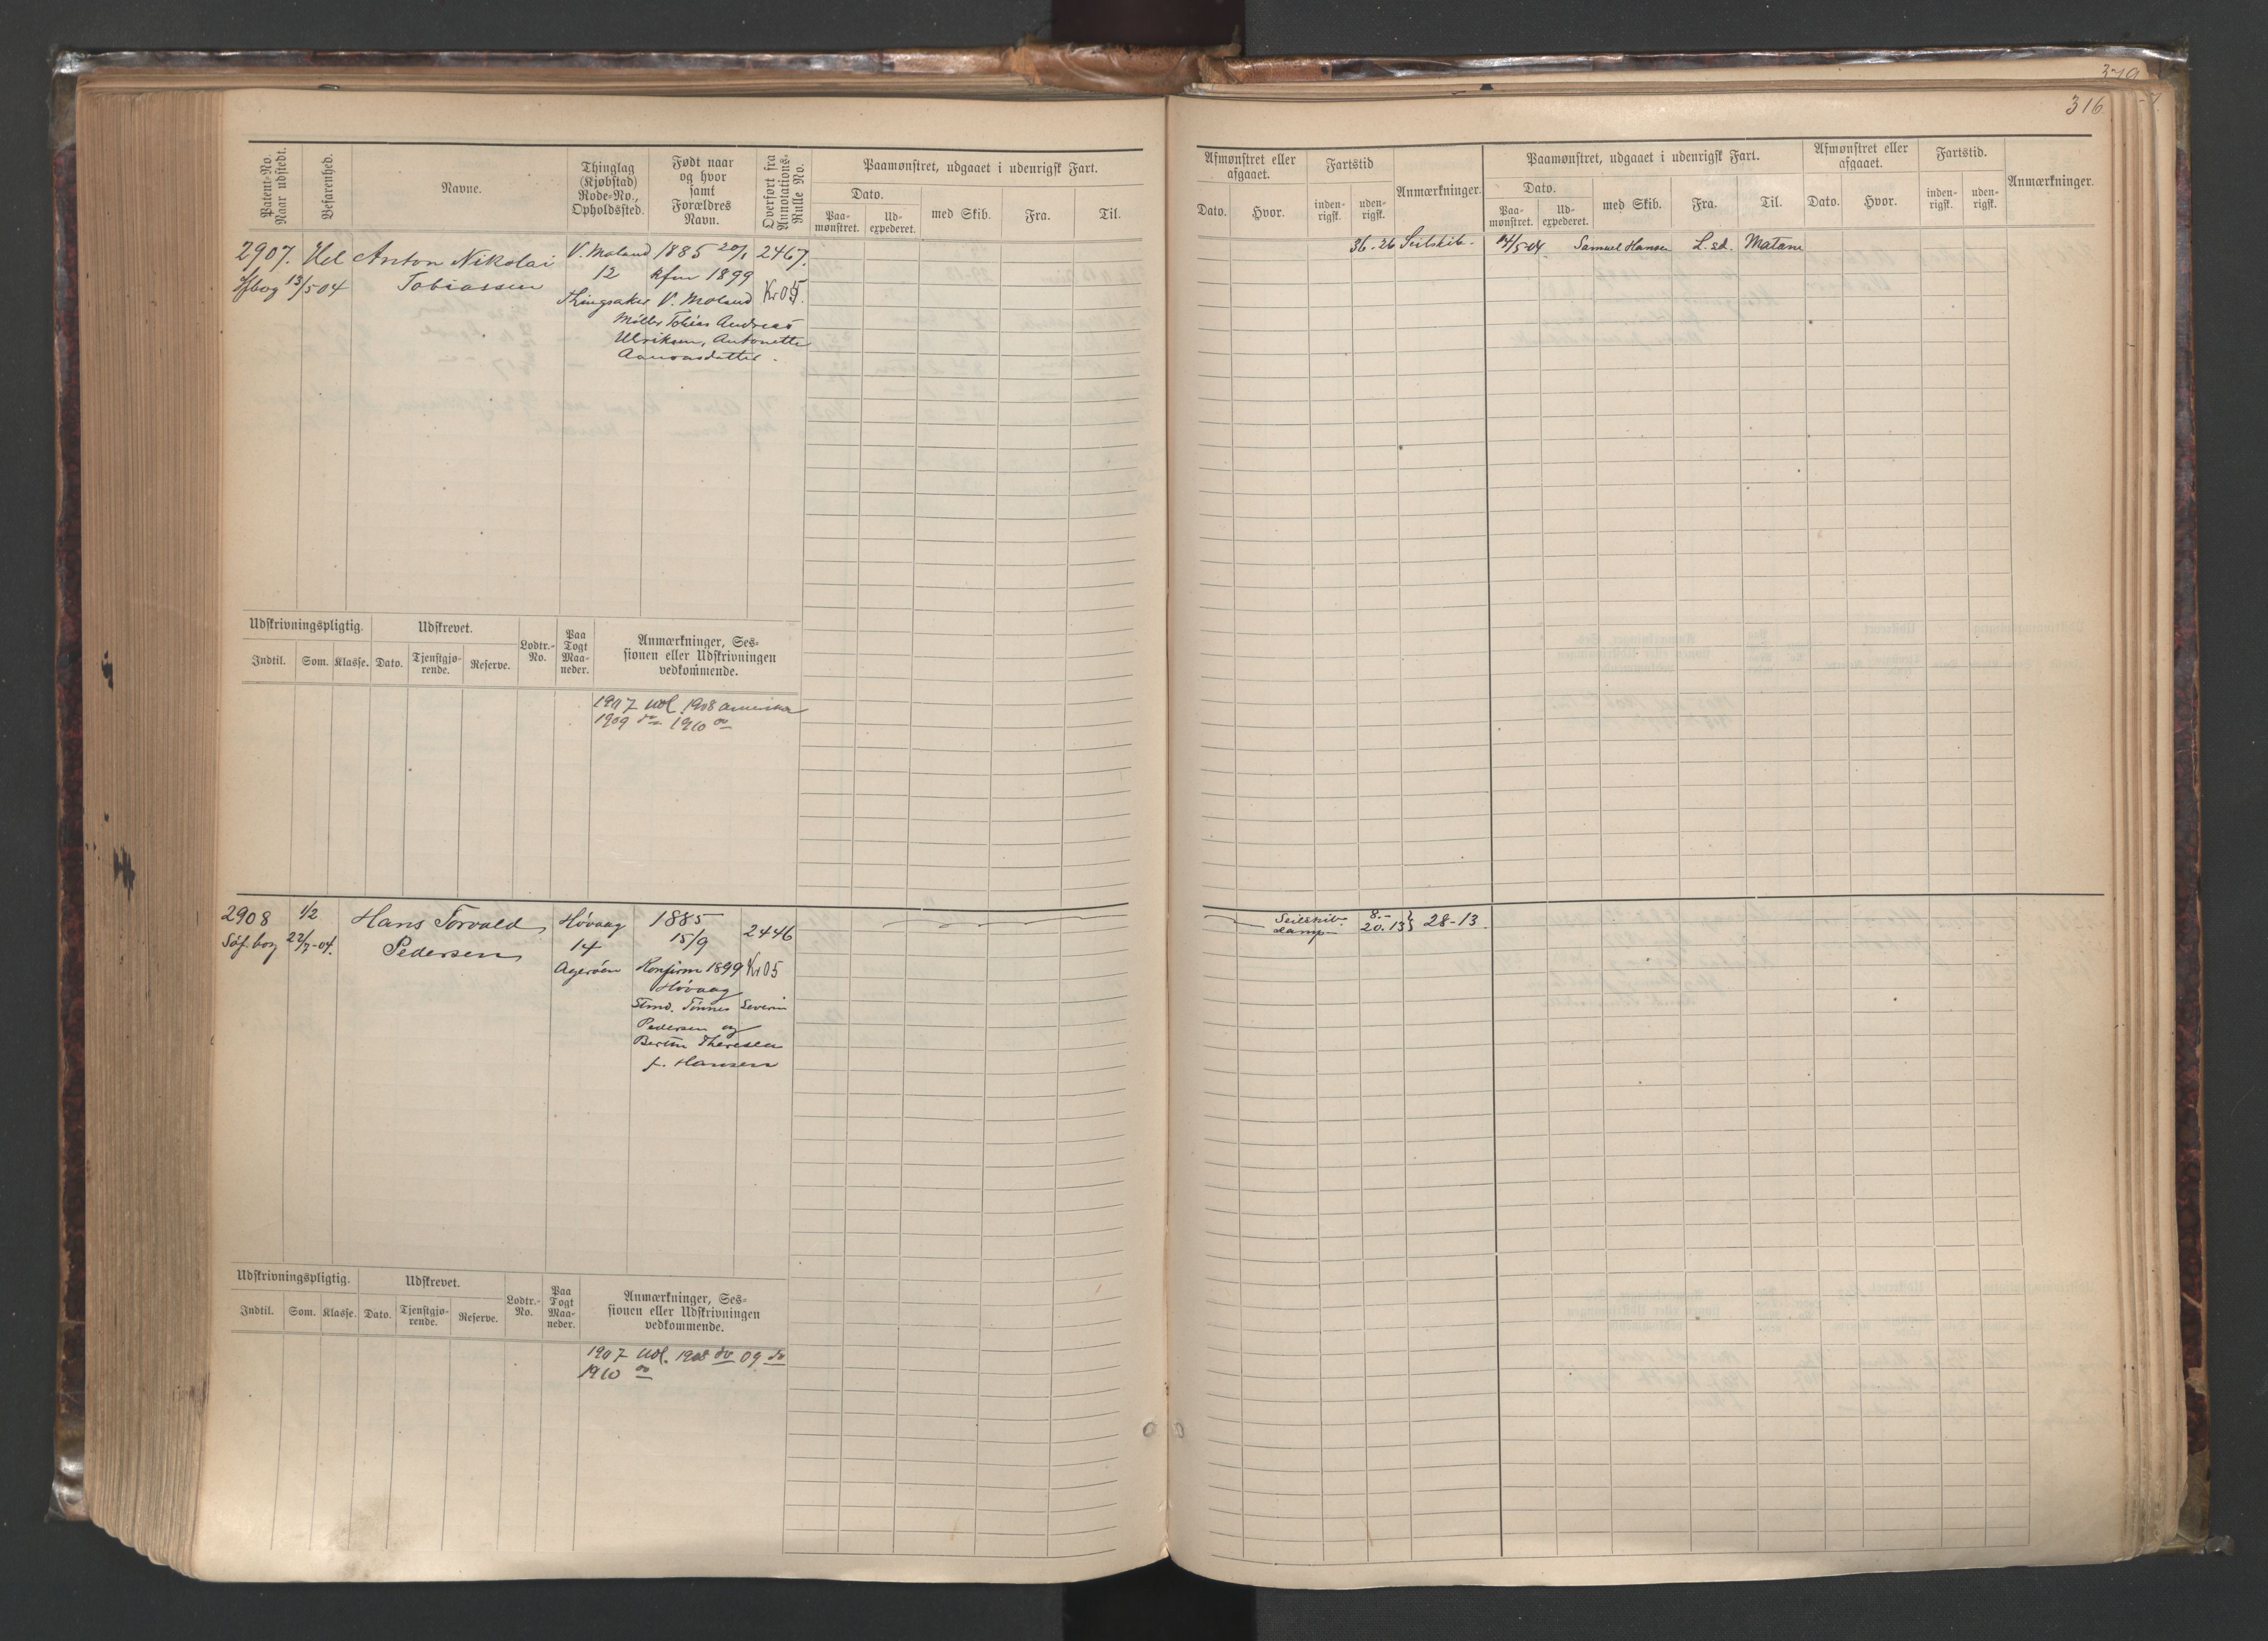 379
316.
Patent-No. Naar udstedt.
Befarenhed.
Navne.
Thinglag (Kjøbstad) Rode-No., Opholdssted.
Født naar og hvor samt Forældres Navn.
Overført fra Annotations-Rulle No.
Paamønstret, udgaaet i udenrigsk Fart.
Dato.
Paa-mønstret.
Ud-expederet.
med Skib.
Fra.
Til.
Afmønstret eller afgaaet.
Dato.
Hvor.
Fartstid
inden-rigsk.
uden-rigsk.
Anmærkninger.
Paamønstret, udgaaet i udenrigsk Fart.
Dato.
Paa-mønstret.
Ud-expederet.
med Skib.
Fra.
Til.
Afmønstret eller afgaaet.
Dato.
Hvor.
Fartstid.
inden-rigsk.
uden-rigsk.
Anmærkninger.
2907. Hel Anton Nikolai V. Moland 1885 20/1 2467.
13/5 04 Tobiassen 12 kfm 1899
V. Moland Kr 05.
Møller Tobias Andreas
Ulriksen, Antonette
36-26 Seilskib. 14/5 04. Samuel Hansen L.sd. Matane
Udskrivningspligtig.
Indtil.
Som.
Klasse.
Udskrevet.
Dato.
Tjenstgjø-rende.
Reserve.
Lodtr.-No.
Paa Togt Maa-neder.
Anmærkninger, Ses-sionen eller Udskrivningen vedkommende.
1907 Udl. 1908 Amerika
1909 do 1910 do
2908 1/2 Hans Torvald Høvaag 1885 2446
Søf. bog 22/7-04. Pedersen 14 15/9
Agerøen Konfirm 1899 Kr 05
Høvaag
Stmd. Tønnes Severin
Pedersen og
Theresea
f. Hansen
Seilskib 8.-
Damp 20.13 } 28-13.
Udskrivningspligtig.
Indtil.
Som.
Klasse.
Udskrevet.
Dato.
Tjenstgjø-rende.
Reserve.
Lodtr.-No.
Paa Togt Maa-neder.
Anmærkninger, Ses-sionen eller Udskrivningen vedkommende.
1907 Udl. 1908 do 09 do
1910 do